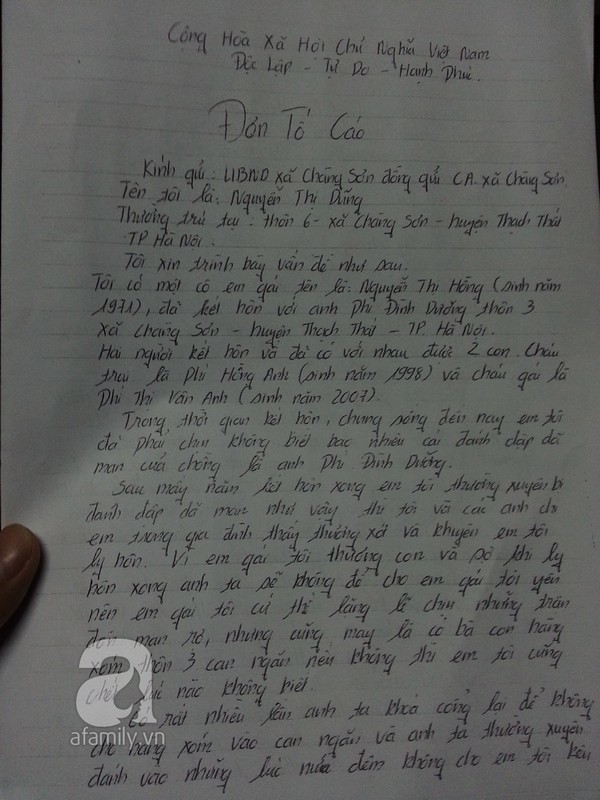 Cộng Hòa Xã Hội Chủ Nghĩa Việt Nam
Độc Lập - Tự Do - Hạnh Phúc.
Đơn Tố Cáo
Kính gửi: UBND xã Chàng Sơn đồng gửi CA. xã Chàng Sơn
Tên tôi là: Nguyễn Thị Dũng
Thường trú tại: thôn 6 - xã Chàng Sơn - huyện Thạch Thất
TP Hà Nội.
Tôi xin trình bày vấn đề như sau.
Tôi có một cô em gái tên là: Nguyễn Thị Hồng (sinh năm
1971), đã kết hôn với anh Phí Đình Dưỡng thôn 3
xã Chàng Sơn - huyện Thạch Thất - TP. Hà Nội.
Hai người kết hôn và đã có với nhau được 2 con. Cháu
trai là Phí Hồng Anh (sinh năm 1998) và cháu gái là
Phí Thị Vân Anh (sinh năm 2007).
Trong thời gian kết hôn, chung sống đến nay em tôi
đã phải chịu không biết bao nhiêu cái đánh đập dã
man của chồng là anh Phí Đình Dưỡng.
Sau mấy năm kết hôn xong em tôi thường xuyên bị
đánh đập dã man như vậy thì tôi và các anh chị
em trong gia đình thấy thương xót và khuyên em tôi
ly hôn. Vì em gái tôi thương con và sợ khi ly
hôn xong anh ta sẽ không để cho em gái tôi yên
nên em gái tôi cứ thế lặng lẽ chịu những trận
đòn man rợ, nhưng cũng may là có bà con hàng
xóm thôn 3 can ngăn nếu không thì em tôi cũng
chết lúc nào không biết.
Có rất nhiều lần anh ta khoá cổng lại để không
cho hàng xóm vào can ngăn và anh ta thường xuyên
đánh vào những lúc nửa đêm không cho em tôi kêu
a
afamily.vn